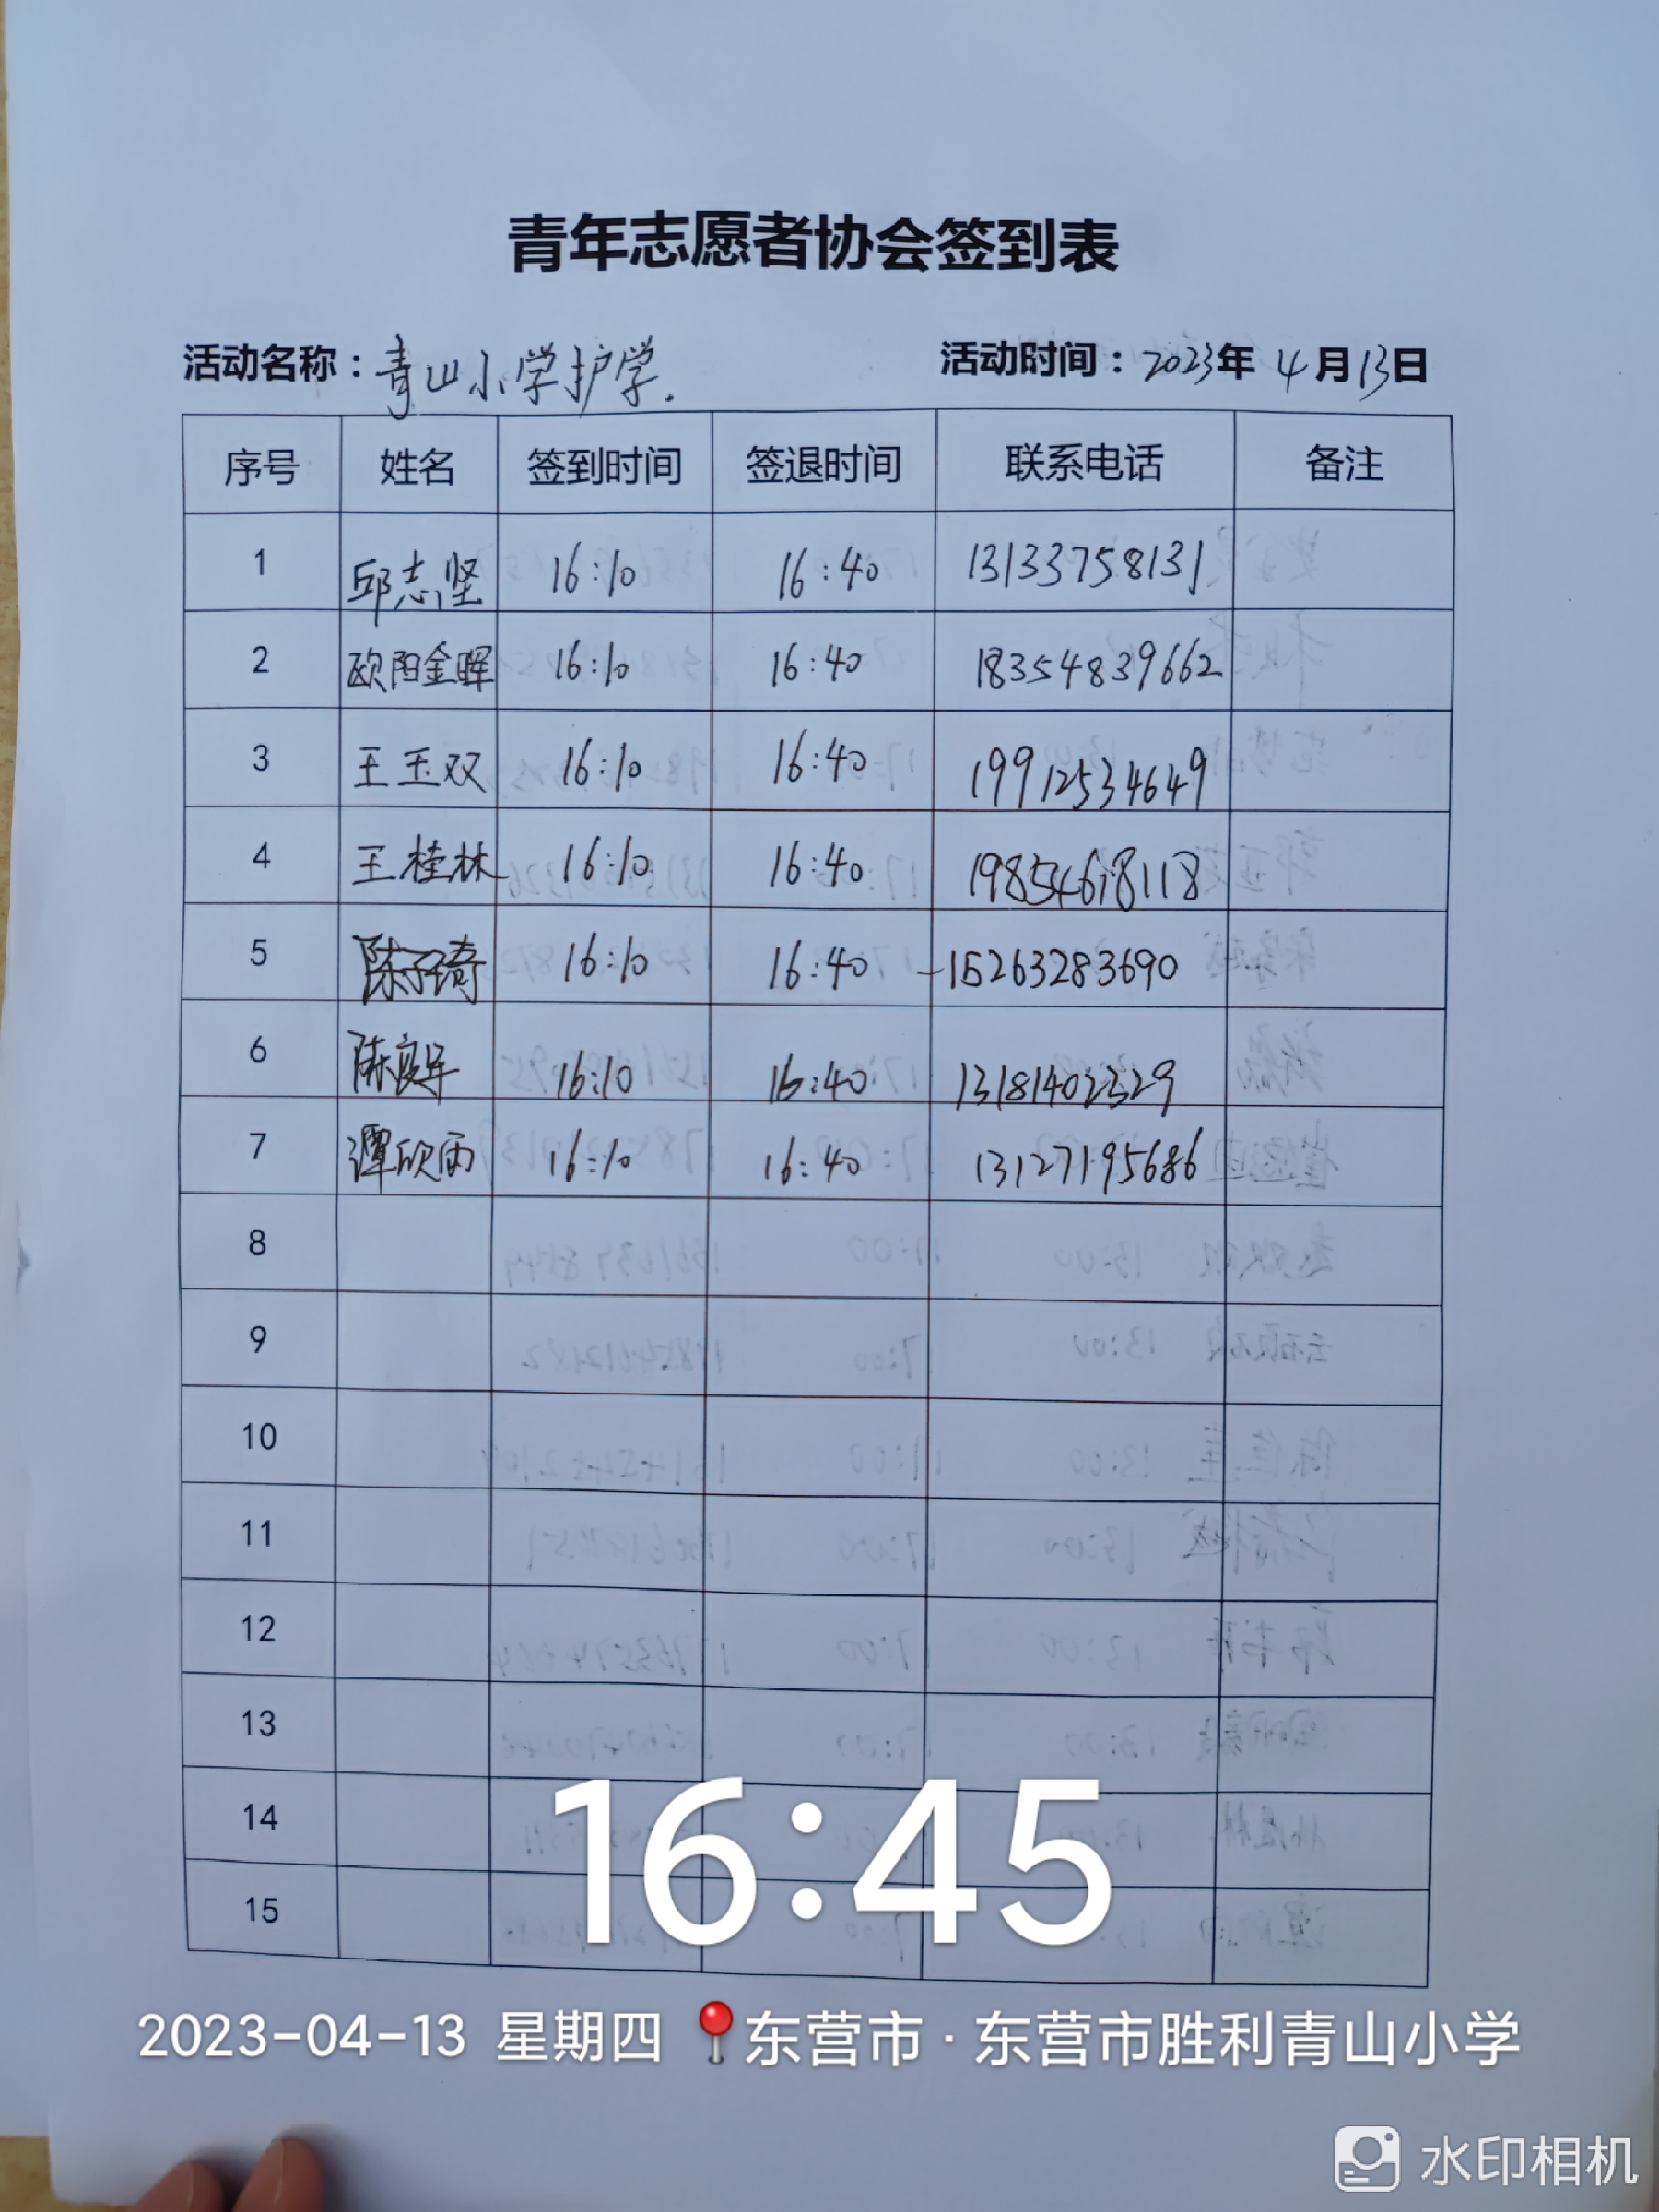 青年志愿者协会签到表
活动名称：青山小学护学. 活动时间：2023年 4月13日
序号 姓名 签到时间 签退时间 联系电话 备注
1 邱志坚 16:10 16:40 13133758131
2 欧阳金晖 16:10 16:40 18354839662
3 王玉双 16:10 16:40 19912534649
4 王桂林 16:10 16:40 19854678118
5 陈子琦 16:10 16:40 15263283690
6 陈 16:10 16:40 13181402329
7 谭欣雨 16:10 16:40 13127195686
8
9
10
11
12
13
14
15
16:45
2023-04-13 星期四 东营市·东营市胜利青山小学
水印相机